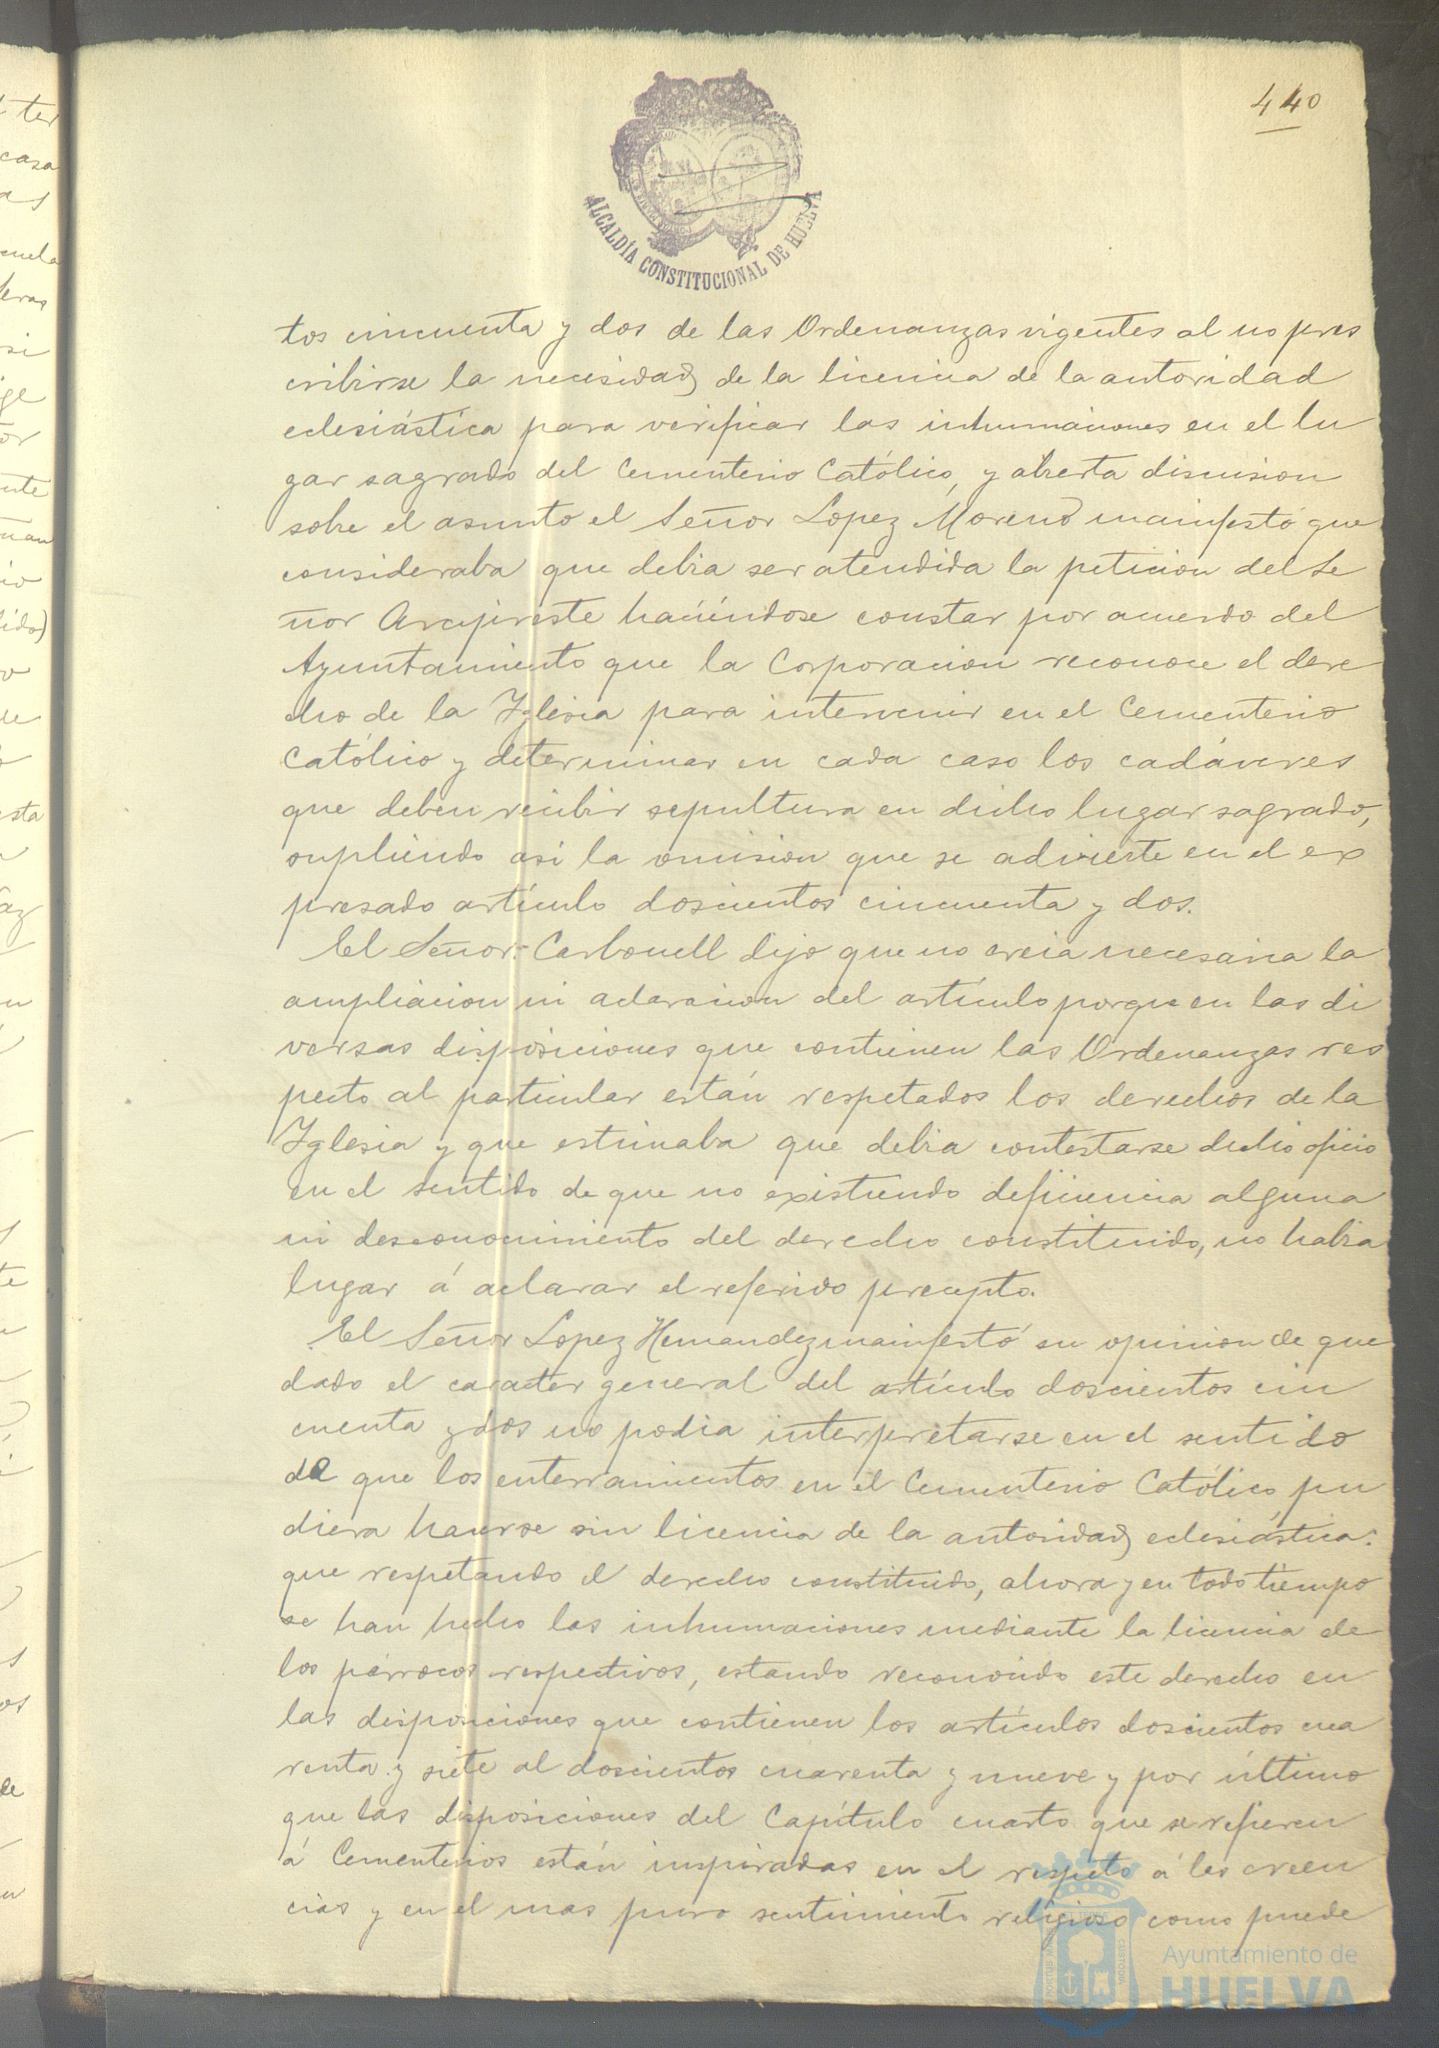 440
ALCALDÍA CONSTITUCIONAL DE HUELVA
tos cincuenta y dos de las Ordenanzas vigentes al no pres
cribirse la necesidad de la licencia de la autoridad
eclesiástica para verificar las inhumaciones en el lu
gar sagrado del Cementerio Católico, y abierta discusion
sobre el asunto el Señor Lopez Moreno manifestó que
consideraba que debia ser atendida la peticion del Se
ñor Arcipreste haciéndose constar por acuerdo del
Ayuntamiento que la Corporacion reconoce el dere
cho de la Iglesia para intervenir en el Cementerio
Católico y determinar en cada caso los cadáveres
que deben recibir sepultura en dicho lugar sagrado,
supliendo así la omision que se advierte en el ex
presado artículo doscientos cincuenta y dos.
El Señor Carbonell dijo que no creia necesaria la
ampliacion ni aclaracion del artículo porque en las di
versas disposiciones que contienen las Ordenanzas res
pecto al particular están respetados los derechos de la
Iglesia y que estimaba que debia contestarse dicho oficio
en el sentido de que no existiendo deficiencia alguna
ni desconocimiento del derecho constituido, no habia
lugar á aclarar el referido precepto.
El Señor Lopez Hernandez manifestó su opinion de que
dado el caracter general del artículo doscientos cin
cuenta y dos no podia interpretarse en el sentido
de que los enterramientos en el Cementerio Católico pu
diera hacerse sin licencia de la autoridad eclesiástica:
que respetando el derecho constituido, ahora y en todo tiempo
se han hecho las inhumaciones mediante la licencia de
los párrocos respectivos, estando reconocido este derecho en
las disposiciones que contienen los artículos doscientos cua
renta y siete al doscientos cuarenta y nueve y por último
que las disposiciones del Capítulo cuarto que se refieren
á Cementerios están inspiradas en el respeto á las creen
cias y en el mas puro sentimiento religioso como puede
Ayuntamiento de
HUELVA